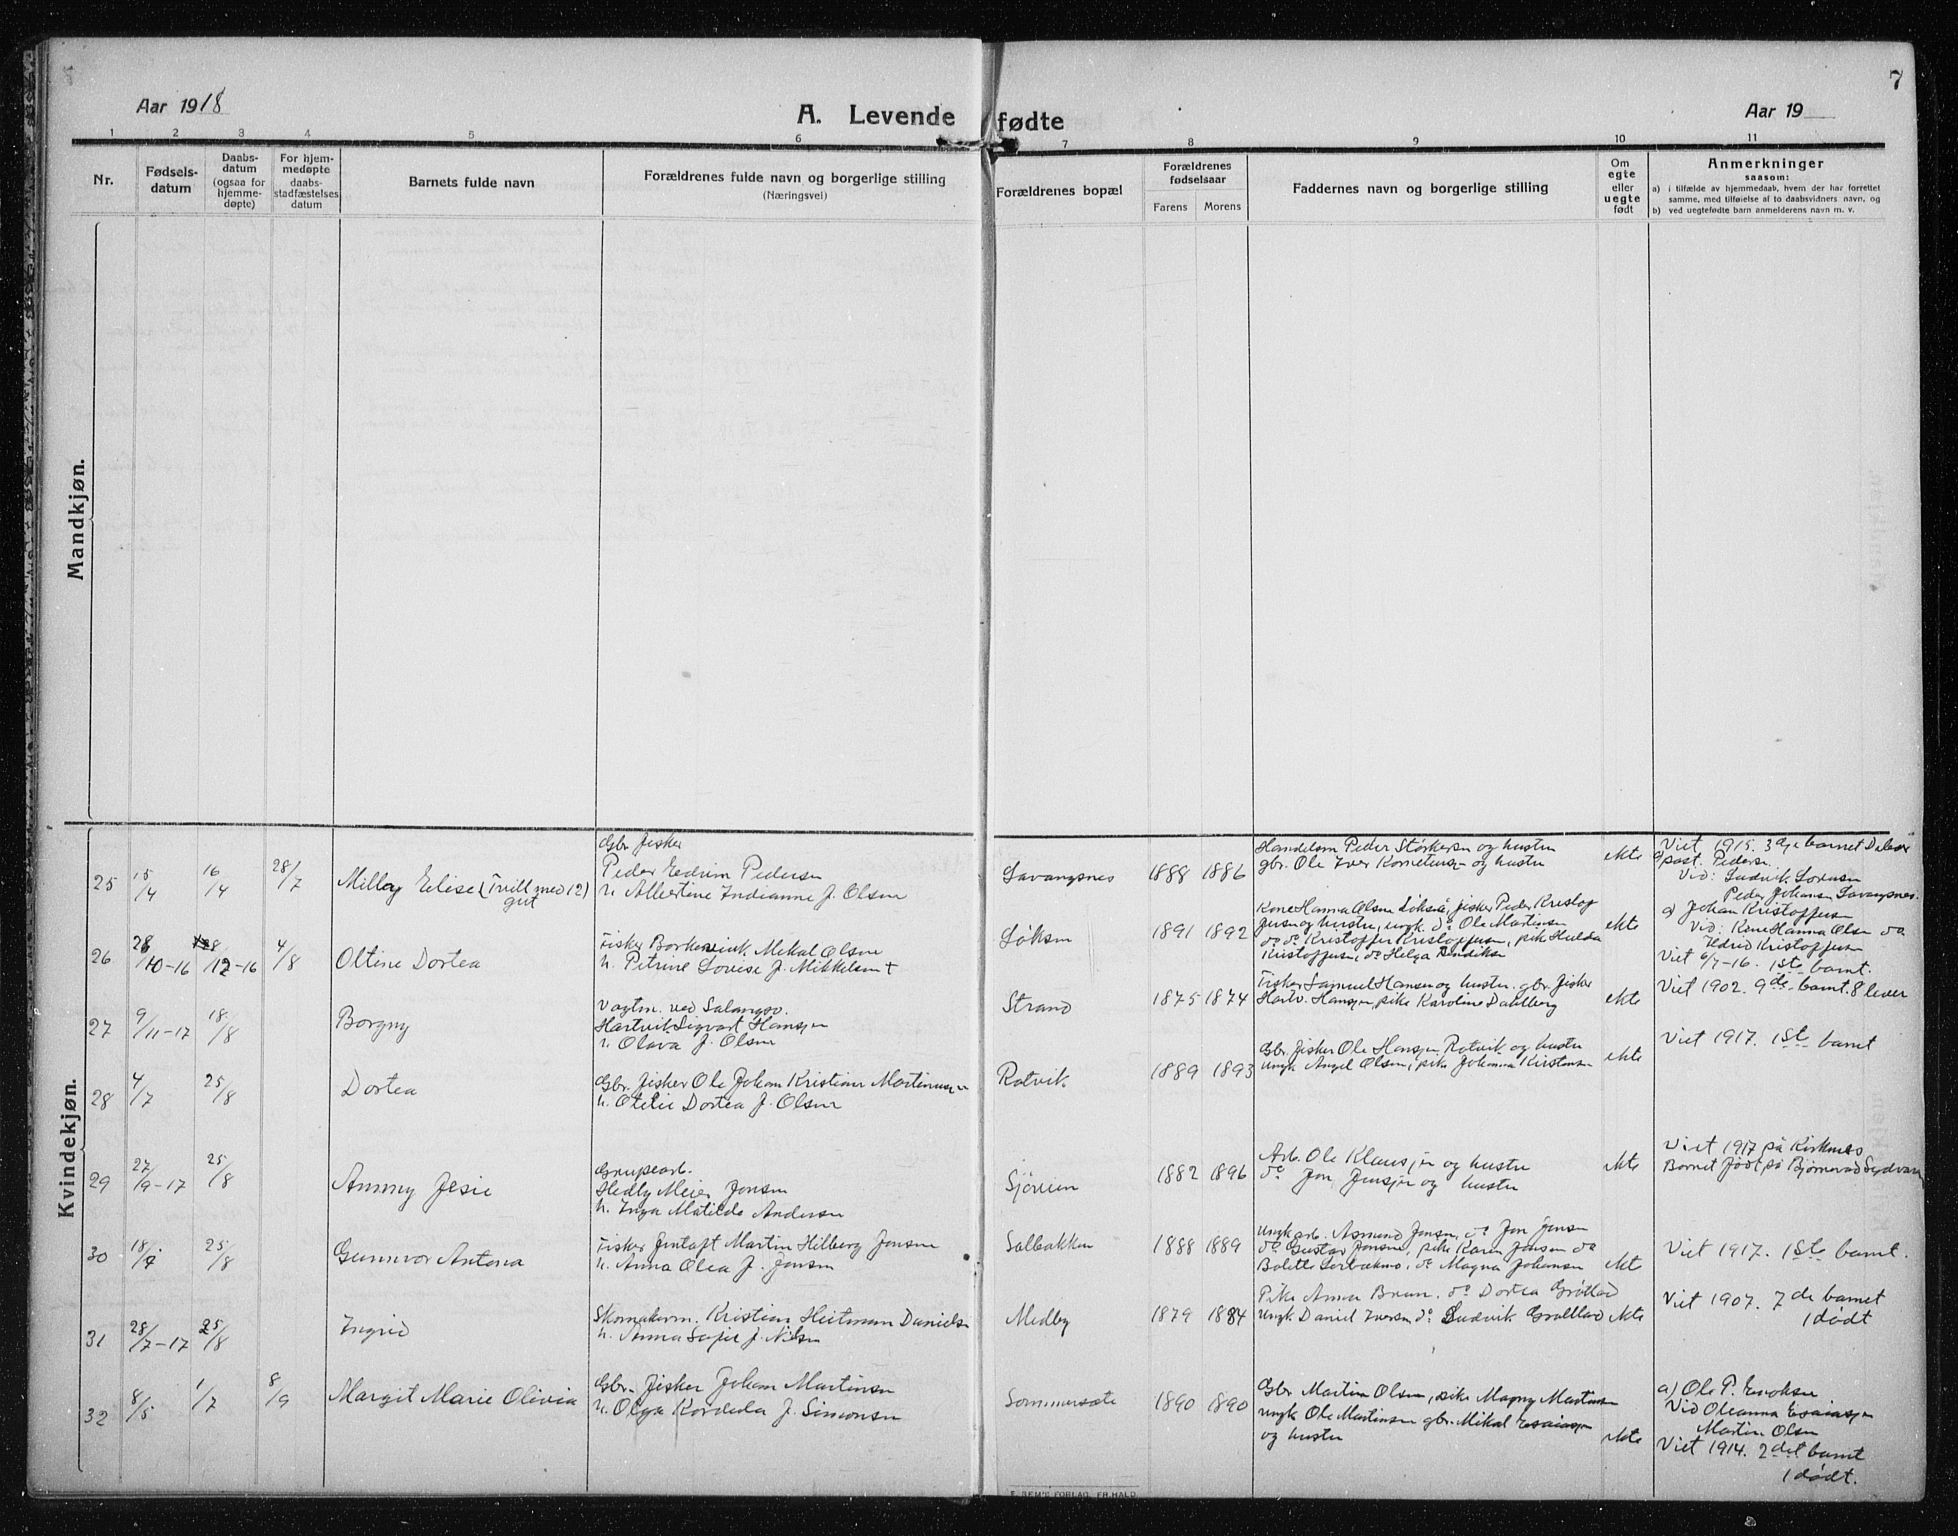 7
Aar 1918
A. Levende fødte
Aar 19
1 2 3 4 5 6 7 8 9 10 11
Nr.
Fødsels-
datum
Daabs-
datum
(ogsaa for
hjemme-
døpte)
For hjem-
medøpte
daabs-
stadfæstelses
datum
Barnets fulde navn
Forældrenes fulde navn og borgerlige stilling
(Næringsvei)
Forældrenes bopæl
Forældrenes
fødselsaar
Farens Morens
Faddernes navn og borgerlige stilling
Om
egte
eller
uegte
født
Anmerkninger
saasom:
a) i tilfælde av hjemmedaab, hvem der har forrettet
samme, med tilføielse af to daabsvidners navn, og
b) ved uegtefødte barn anmelderens navn m. v.
Mandkjøn.
Kvindekjøn.
25 15/4 16/4 28/7
Milly Elise (Tvill. med 12)
gut
Gbr. fisker
Peder Edvin Pedersen
h. Albertine Indianne f. Olsen
Lavangsnes
1888 1886
Handelsm Peder Størkersen og hustru
gbr. Ole Iver Korneliusen og hustru
ekte
Viet 1915. 3dje barnet
Pedersen
Vid: Ludvik Sørensen
Peder Johansen Lavangsnes.
26 28/10-16 /12-16 4/8
Oltine Dortea
Fisker Mekal Olsen
h. Petrine Lovise f. Mikkelsen +
Løksen
1891 1892
Kone Hanna Olsen Løksen, fisker Peder Kristof
fersen og hustru, ungk. do Ole Martinsen
do do Kristoffer Kristoffersen, pike Hulda
Kristoffersen, do Helga Bendiksen
ekte
a) Johan Kristoffersen
Vid: Kone Hanna Olsen og
Kristoffersen
Viet 6/7-16. 1ste barnet.
27 9/11-17 18/8
Borgny
Vagtm. ved Salangsv.
Hartvik Sigvart Hansen
h. Olava f. Olsen
Strand
1875 1874
Fisker Samuel Hansen og hustru. gbr. fisker
Hartv. Hansen, pike Karoline Dahlberg
ekte
Viet 1902. 9de barnet. 8 lever
28 4/7 25/8
Dortea
Gbr. fisker Ole Johan Kristian Martinusen
h. Otelie Dortea f. Olsen
Rotvik
1889 1893
Gbr. fisker Ole Hansen Rotvik og hustru
ungk. Angel Olsen, pike Johanna Kristensen
ekte
Viet 1917. 1ste barnet
29 27/9-17 25/8
Ammy Jesie
Grupearb.
Hedly Meier Jensen
h. Inga Matilde Andersen
Sjøveien
1882 1896
Arb. Ole Klausen og hustru
do Jon Jensen og hustru
ekte
Viet 1917 på Kirkenes
Barnet født på Bjørnevad Sydvar
30 18/ 25/8
Gunnvor Antona
Fisker Martin Hilberg Jensen
h. Anna Olea f. Jensen
Salbakken
1888 1889
Ungk arb. Asmund Jensen, do Jon Jensen
do Gustav Jensen, pike Karen Jensen do
Bolette Sørbakmo, do Magna Johansen
ekte
Viet 1917. 1ste barnet.
31 28/7-17 25/8
Ingrid
Skomakerm. Kristian Heitmann Danielsen
h. Anna Sofie f. Nilsen
Medby
1879 1884
Pike Anna Brun, do Dortea Grøtland
Ungk Daniel Iversen do Ludvik Grøtland
ekte
Viet 1907. 7de barnet
1 dødt
32 8/5 1/7 8/9
Margit Marie Olivia
Gbr. fisker Johan Martinsen
h. Olga Kordelia f. Simonsen
Sommersæte
1890 1890
Gbr Martin Olsen, pike Magny Martinsen
ungk Ole Martinsen gbr. Mikal Esaiasen
og hustru
ekte
a) Ole P. Enoksen
Vid Oleanna Esaiasen
Martin Olsen
Viet 1914. 2det barnet
1 dødt.